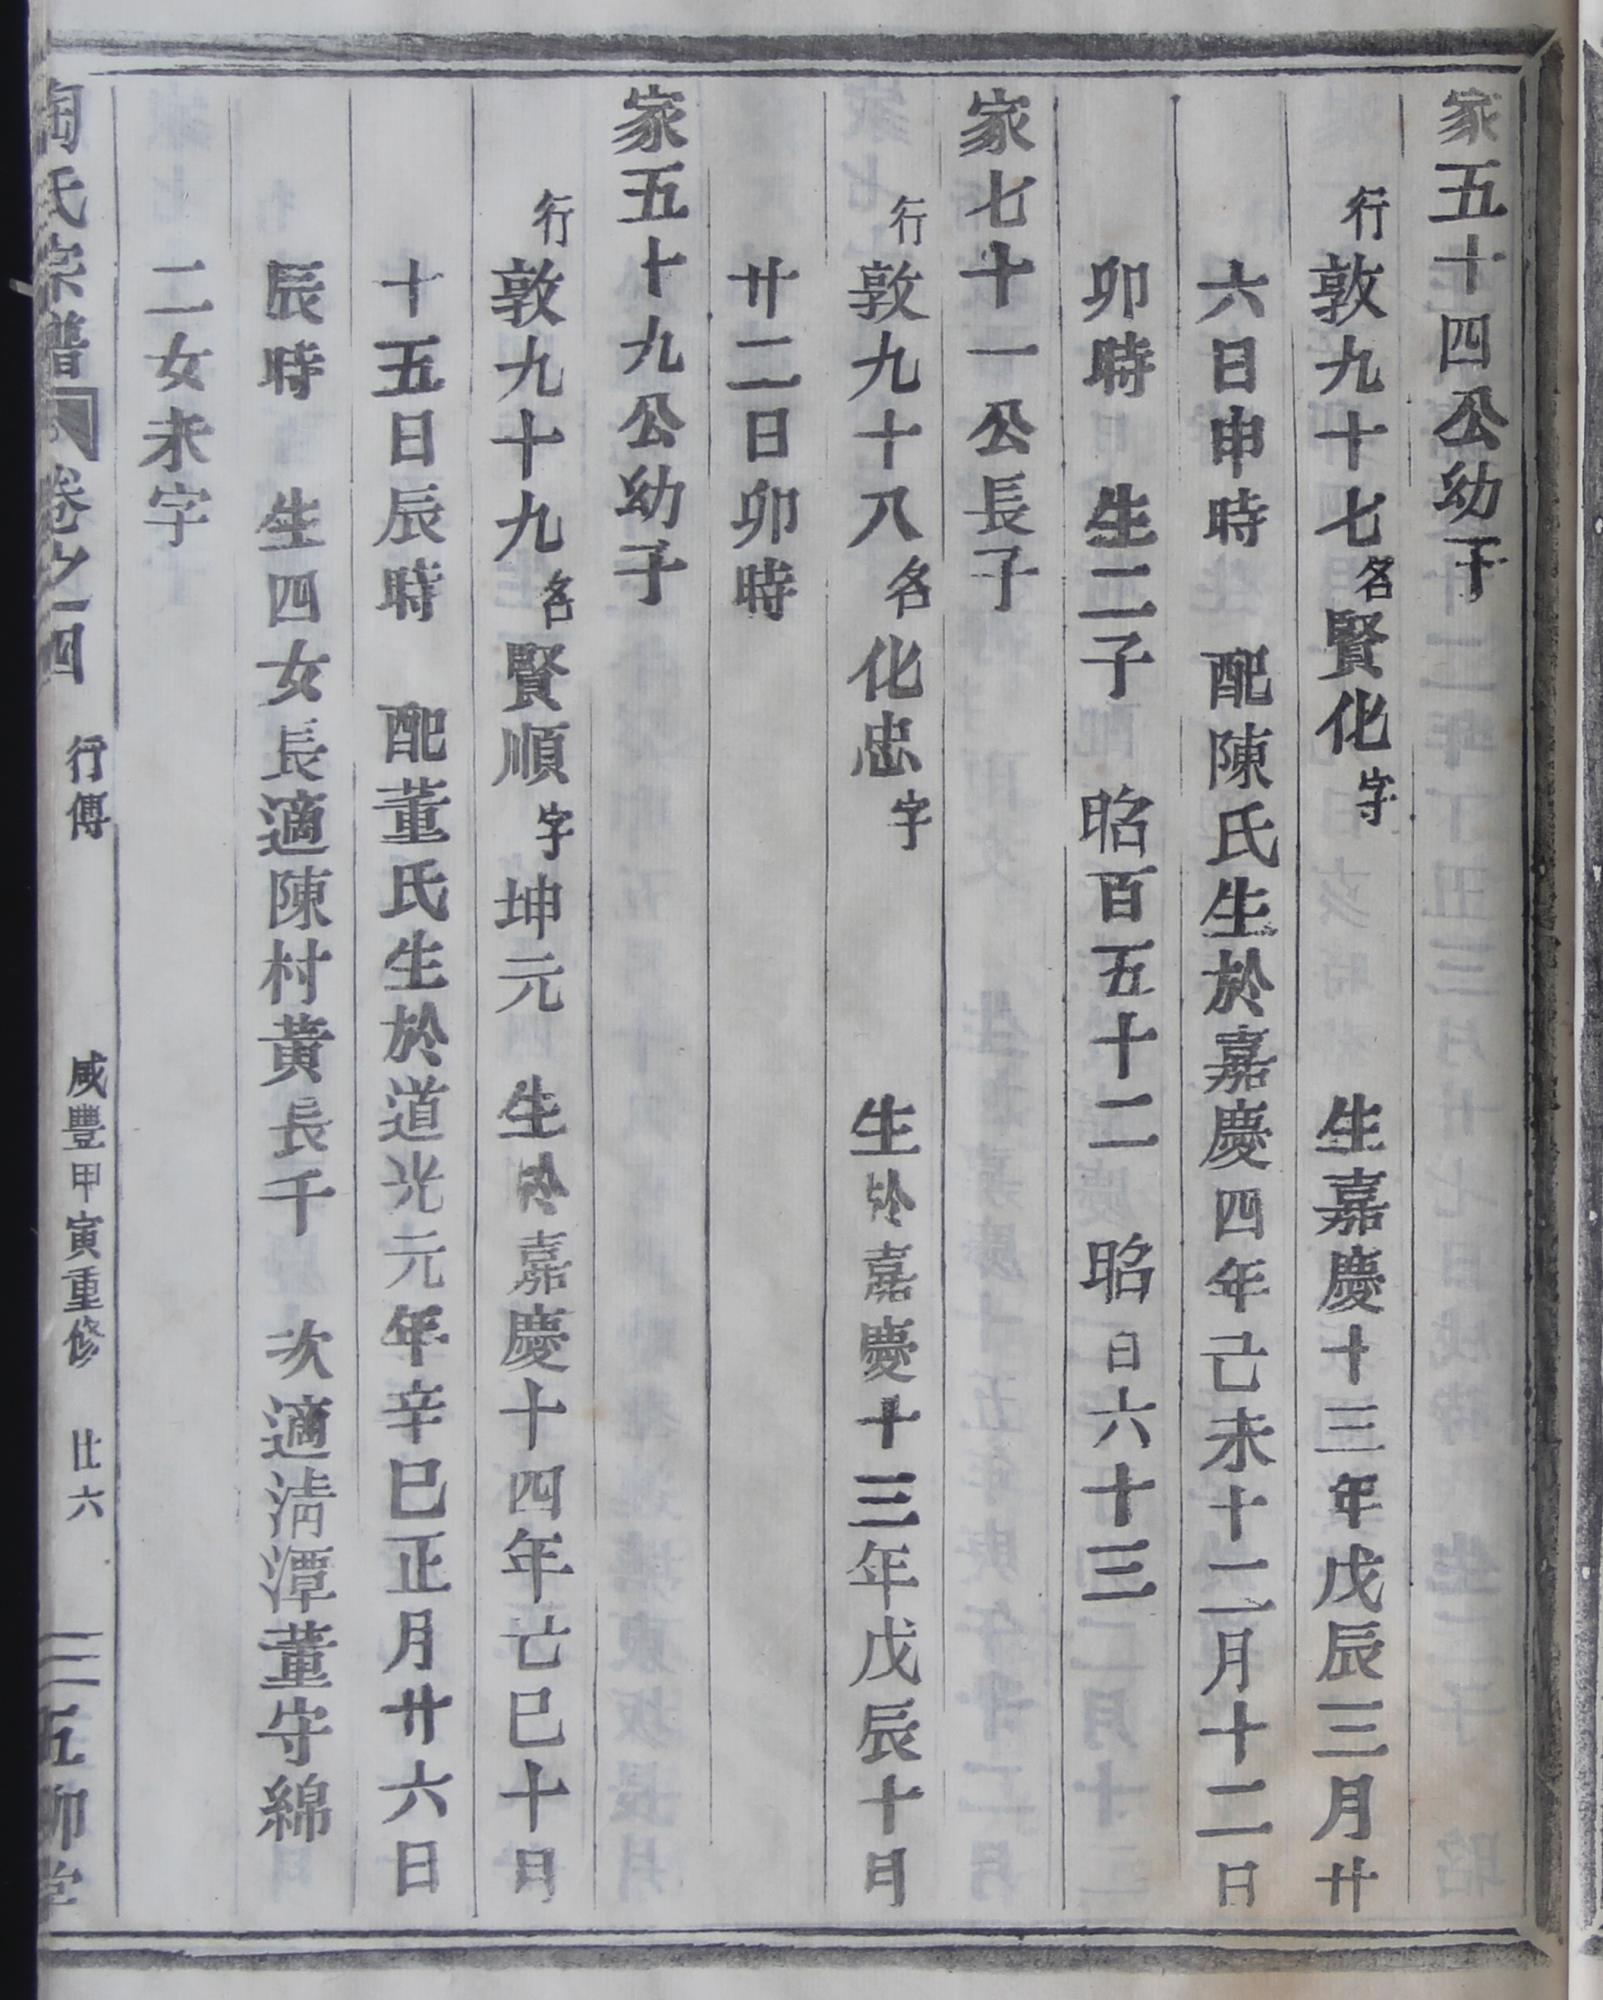 家五十四公幼子
行敦九十七名賢化字 生嘉慶十三年戊辰三月廿
六日申時 配陳氏生於嘉慶四年己未十二月十二日
卯時 生二子 昭百五十二 昭日六十三
家七十一公長子
行敦九十八名化忠字 生於嘉慶十三年戊辰十月
廿二日卯時
家五十九公幼子
行敦九十九名賢順字坤元 生於嘉慶十四年己巳十日
十五日辰時 配董氏生於道光元年辛巳正月廿六日
辰時 生四女長適陳村黃長千 次適清潭董守綿
二女未字
陶氏宗譜 卷之四 行傳 咸豐甲寅重修 廿六 五柳堂